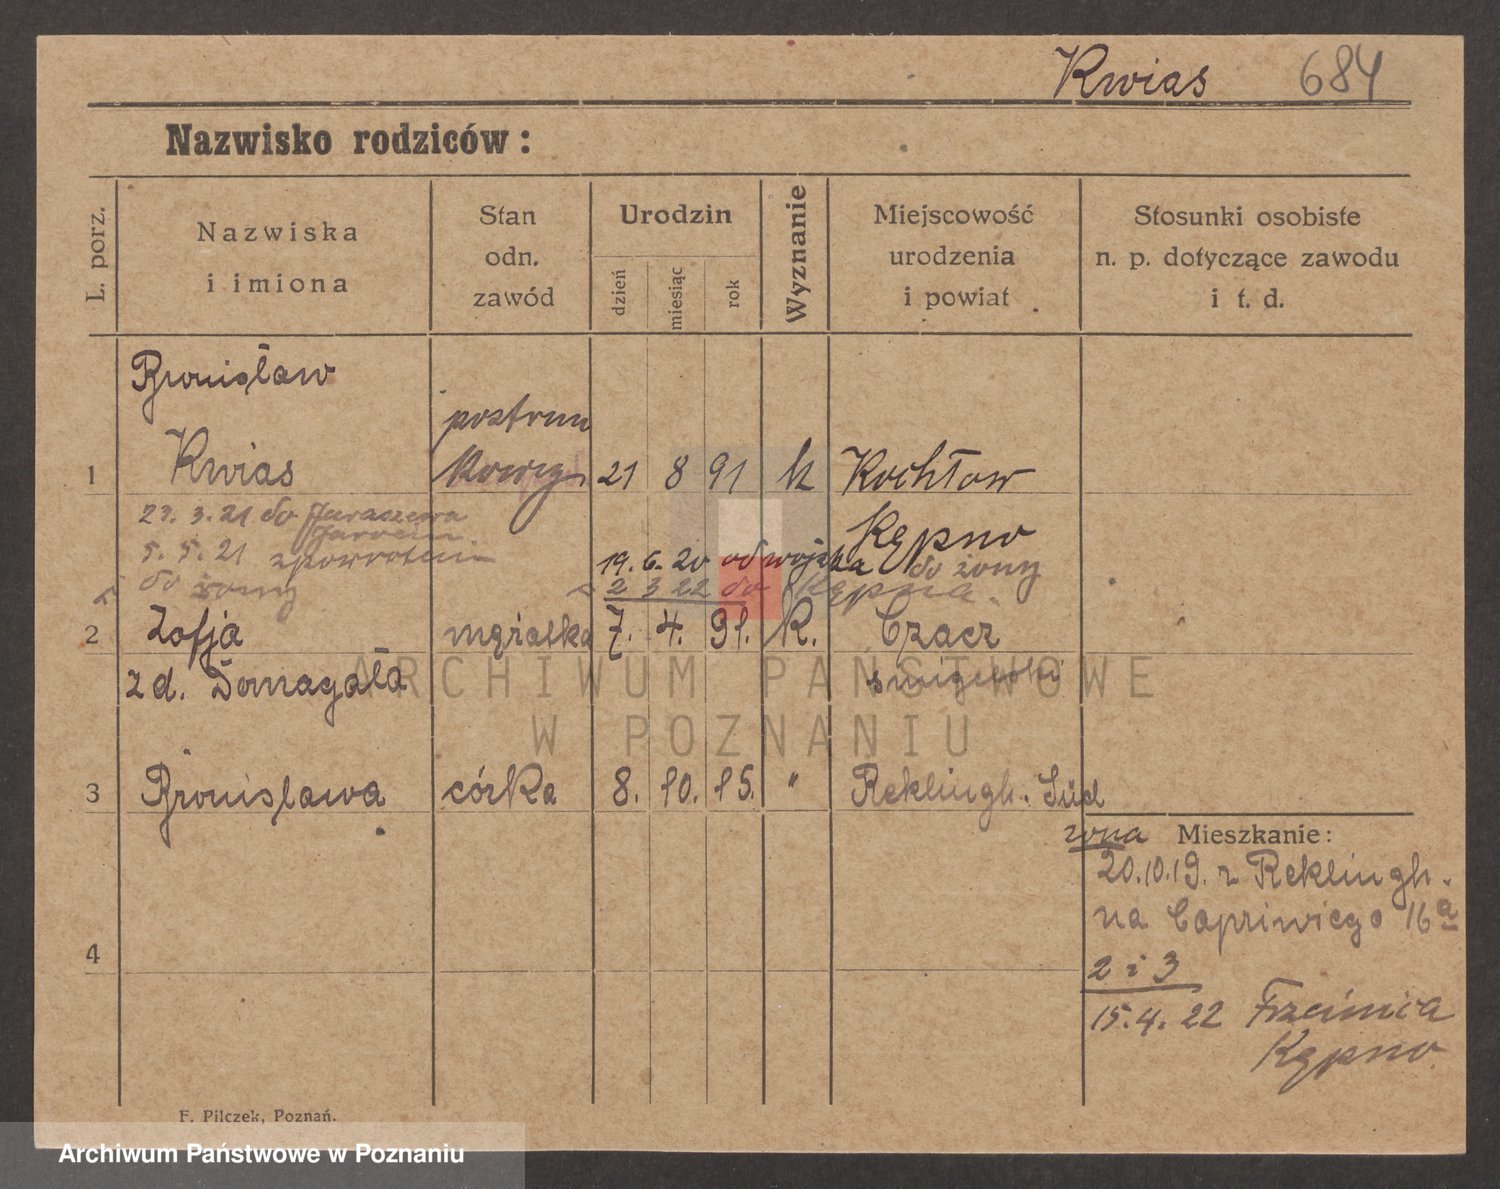 Kwias 684
Nazwisko rodziców:
L. porz.
Nazwiska
i imiona
Stan
odn.
zawód
Urodzin
dzień
miesiąc
rok
Wyznanie
Miejscowość
urodzenia
i powiat
Stosunki osobiste
n. p. dotyczące zawodu
i t. d.
Bronisław
postrun
1 Kwias kowy 21 8 91 k Kochłow
Kępno
23. 3. 21 do Jaraczewa
Jarocin
5. 5. 21 z powrotem
do żony
19. 6. 20 od wojska do żony
2 3 22 do Kępna.
2 Zofja mężatka 7. 4. 91. K. Czacz
zd. Domagała śmigelski
3 Bronisława córka 8. 10. 15. " Reklingh. Süd
żona Mieszkanie:
20.10.19. z Reklingh.
na Capriwiego 16a
4
2 i 3
15.4.22
Kępno.
F. Pilczek, Poznań.
ARCHIWUM PAŃSTWOWE
W POZNANIU
Archiwum Państwowe w Poznaniu